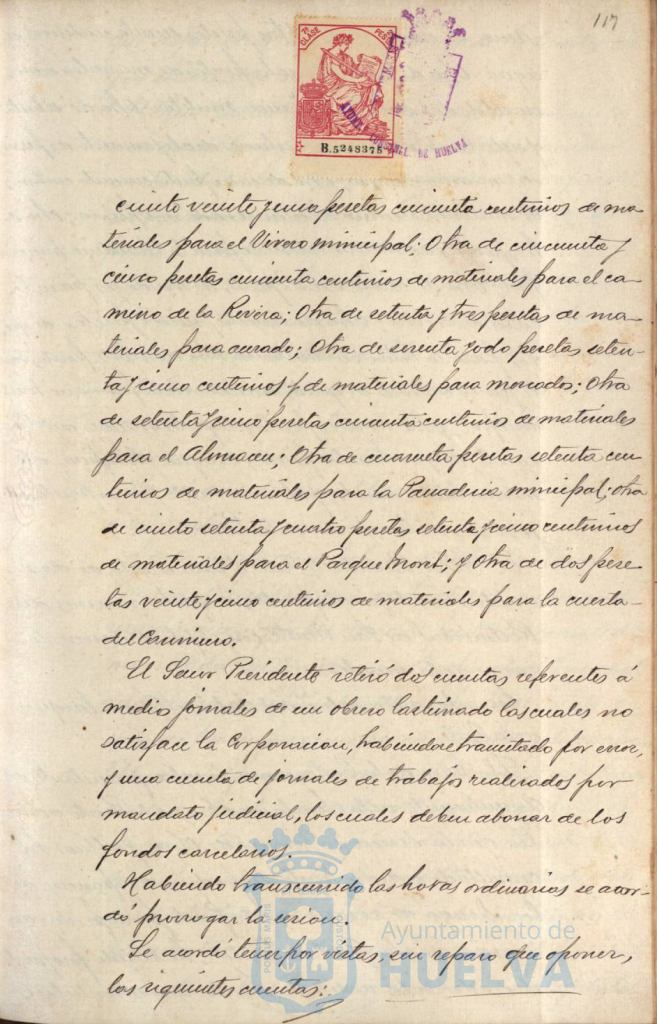 117
7ª CLASE PESETAS
B.5248375
HUELVA
ciento veinte y una pesetas cincuenta centimos de ma-
teriales para el Vivero municipal; Otra de cincuenta y
cinco pesetas cincuenta centimos de materiales para el ca-
mino de la Rivera; Otra de setenta y tres pesetas de ma-
teriales para acerado; Otra de sesenta y odo pesetas seten-
ta y cinco centimos p de materiales para mercados; Otra
de setenta y cinco pesetas cincuenta centimos de materiales
para el Almacen; Otra de cuarenta pesetas setenta cen-
timos de materiales para la Panaderia municipal; otra
de ciento setenta y cuatro pesetas setenta y cinco centimos
de materiales para el Parque Moret; y Otra de dos pese-
tas veinte y cinco centimos de materiales para la cuesta
del Carnicero.
El Señor Presidente retiró dos cuentas referentes á
medios jornales de un obrero lastimado las cuales no
satisface la Corporacion, habiendose tramitado por error,
y una cuenta de jornales de trabajos realizados por
mandato judicial, los cuales deben abonar de los
fondos carcelarios.
Habiendo transcurrido las horas ordinarias se acor-
dó prorrogar la sesion.
Se acordó tener por vistas, sin reparo que oponer,
las siguientes cuentas:
Ayuntamiento de
HUELVA